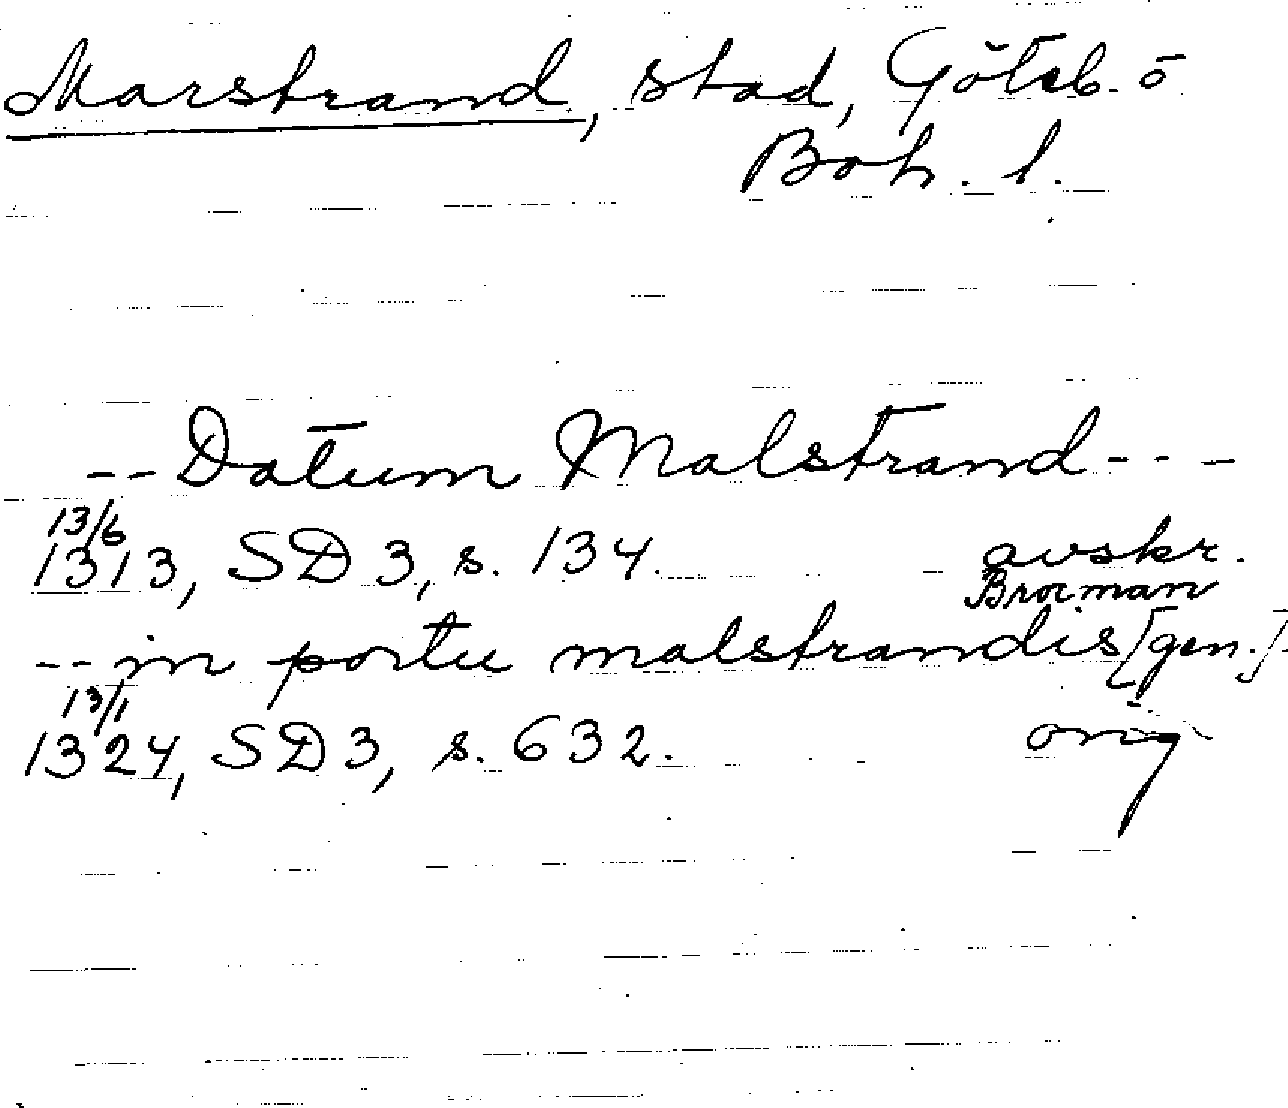 Marstrand, stad, Göteb. o
Boh. l.
-- Datum Malstrand ---
13/6
1313, SD 3, s. 134. avskr.
Brocman
-- in portu malstrandis [gen.] -
13/1
1324, SD 3, s. 632. orig